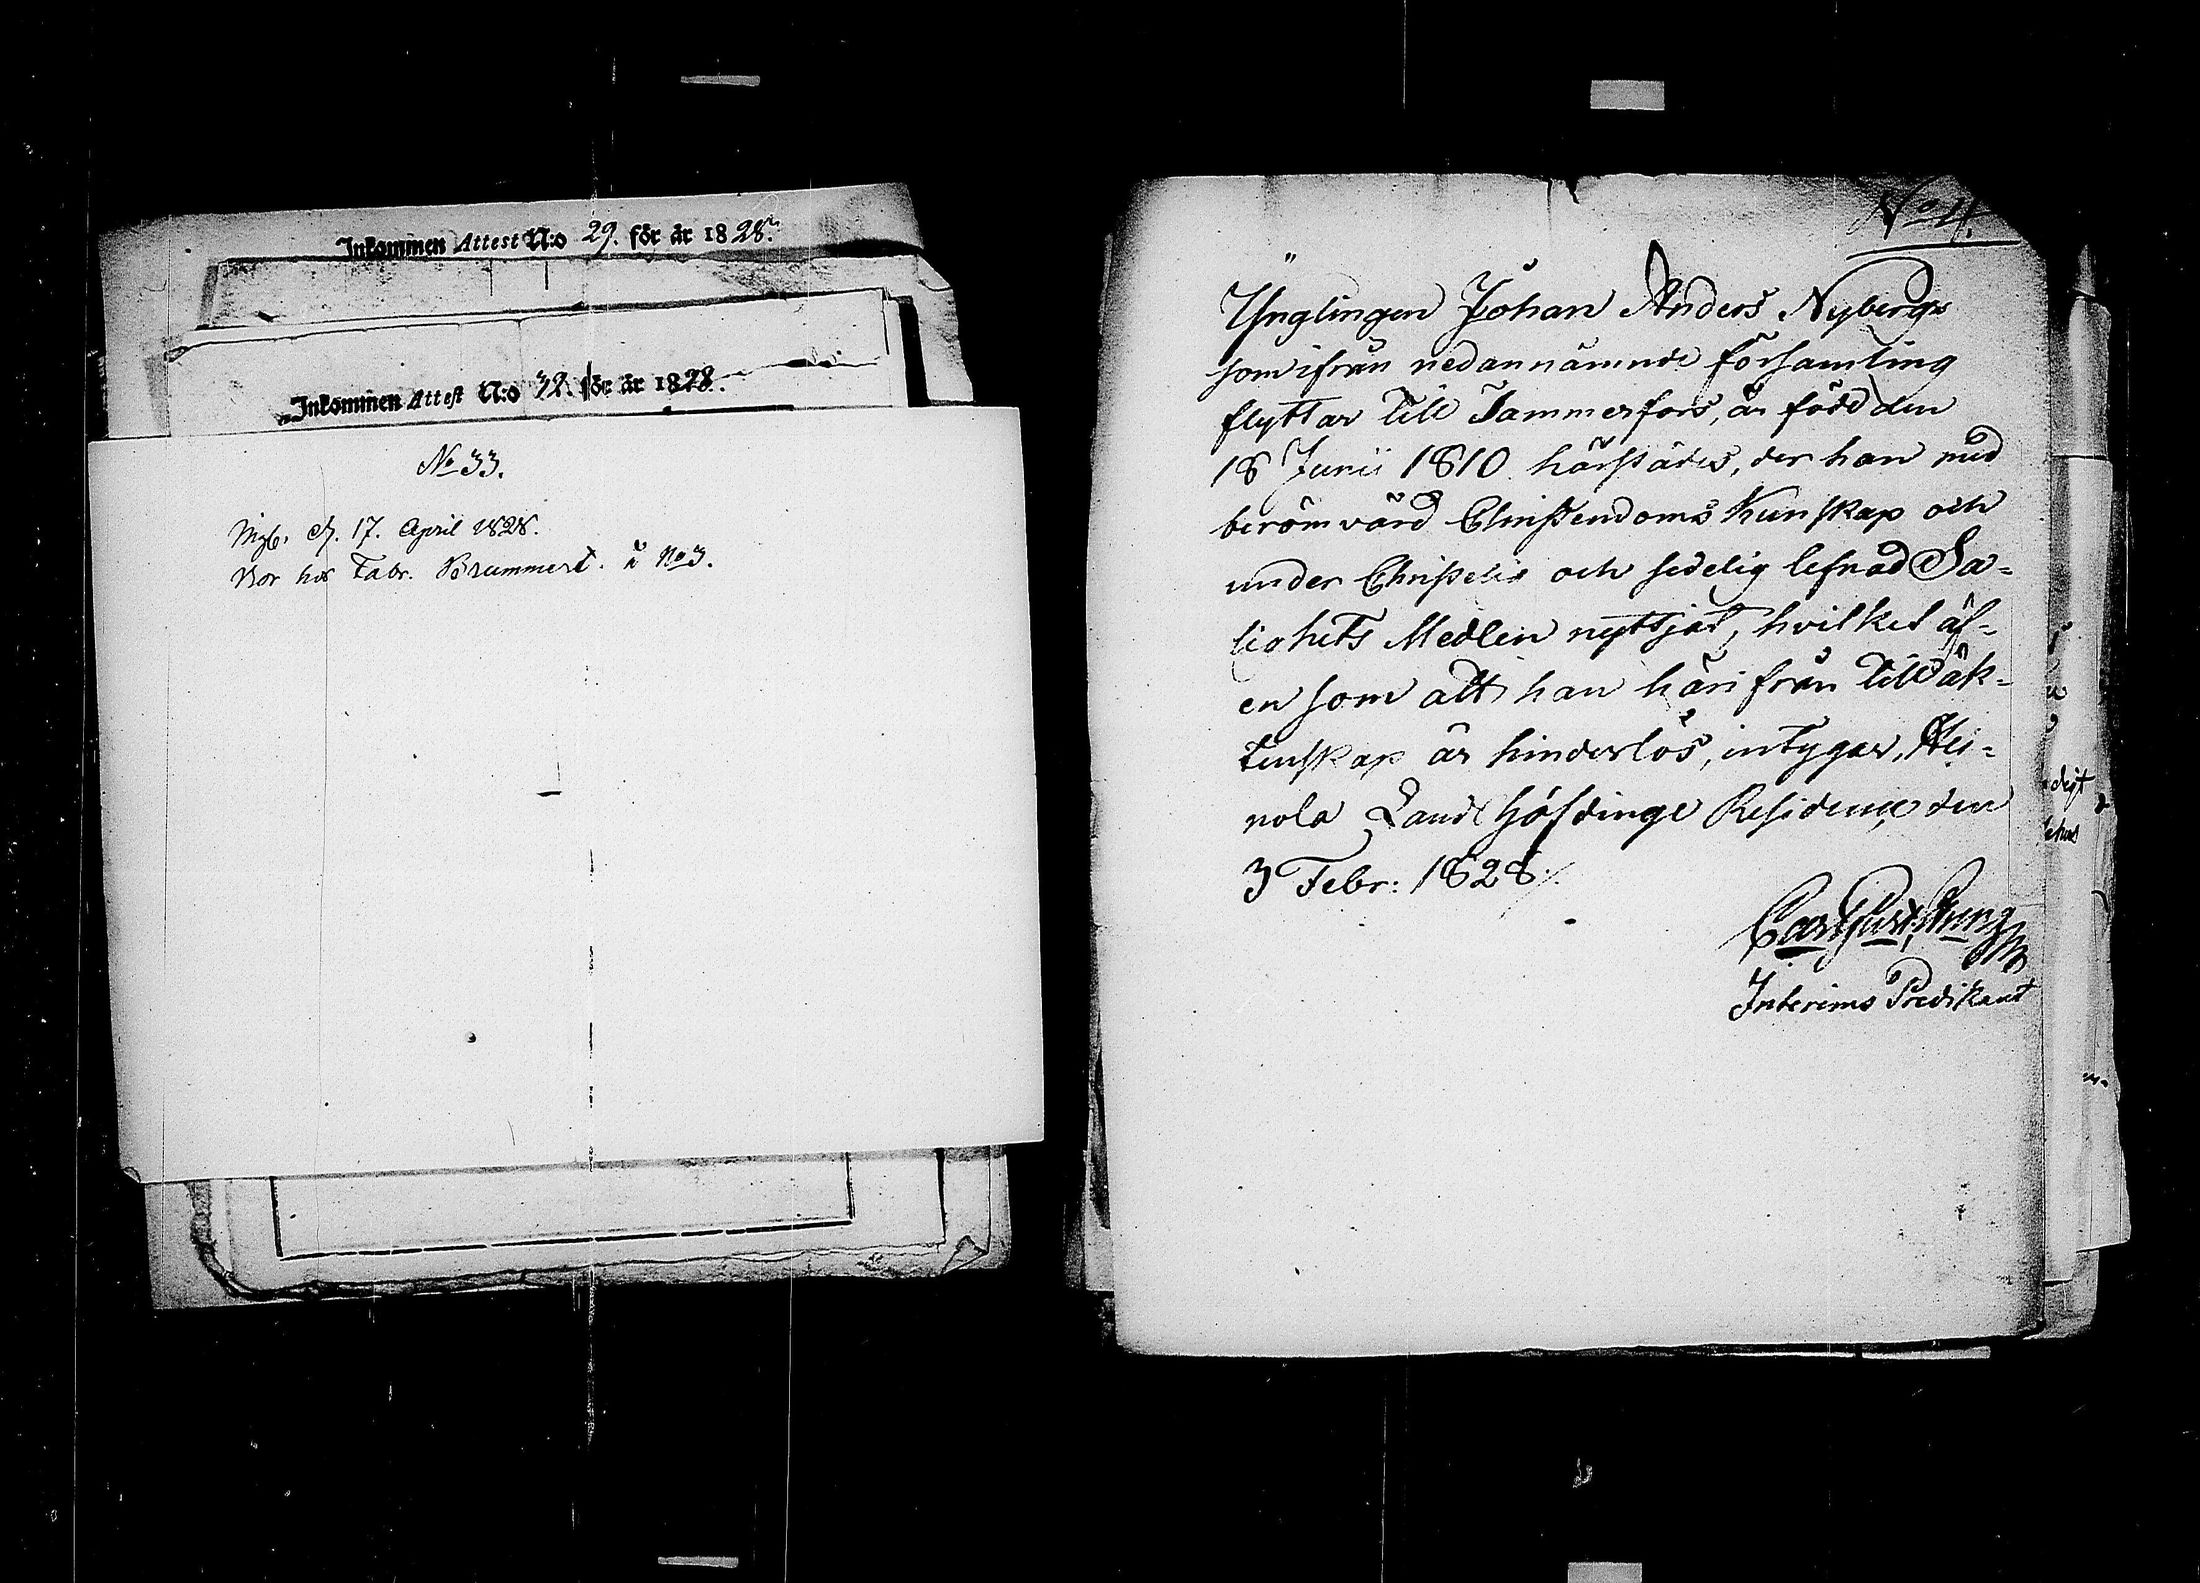 Inkommen Attest N:o 29. för år 1828.
Inkommen Attest N:o 32. för år 1828.
No 33.
d. 17. April 1828.
Bor hos Fabr. Brummert. å No 3.
No 4.
Ynglingen Johan Anders Nyberg
som ifrån nedannämnde församling
flyttar till Tammerfors, är född den
18 Junii 1810 härstädes, der han med
berömvärd Christendoms Kunskap och
under Christelig och sedelig lefnad Sa-
lighets Medlen nyttjat, hvilket äf-
en som att han härifrån till äk-
tenskap är hinderlös, intygar, Hei-
nola Landshöfdinge Residence den
3 Febr: 1828.
Interims Predikant